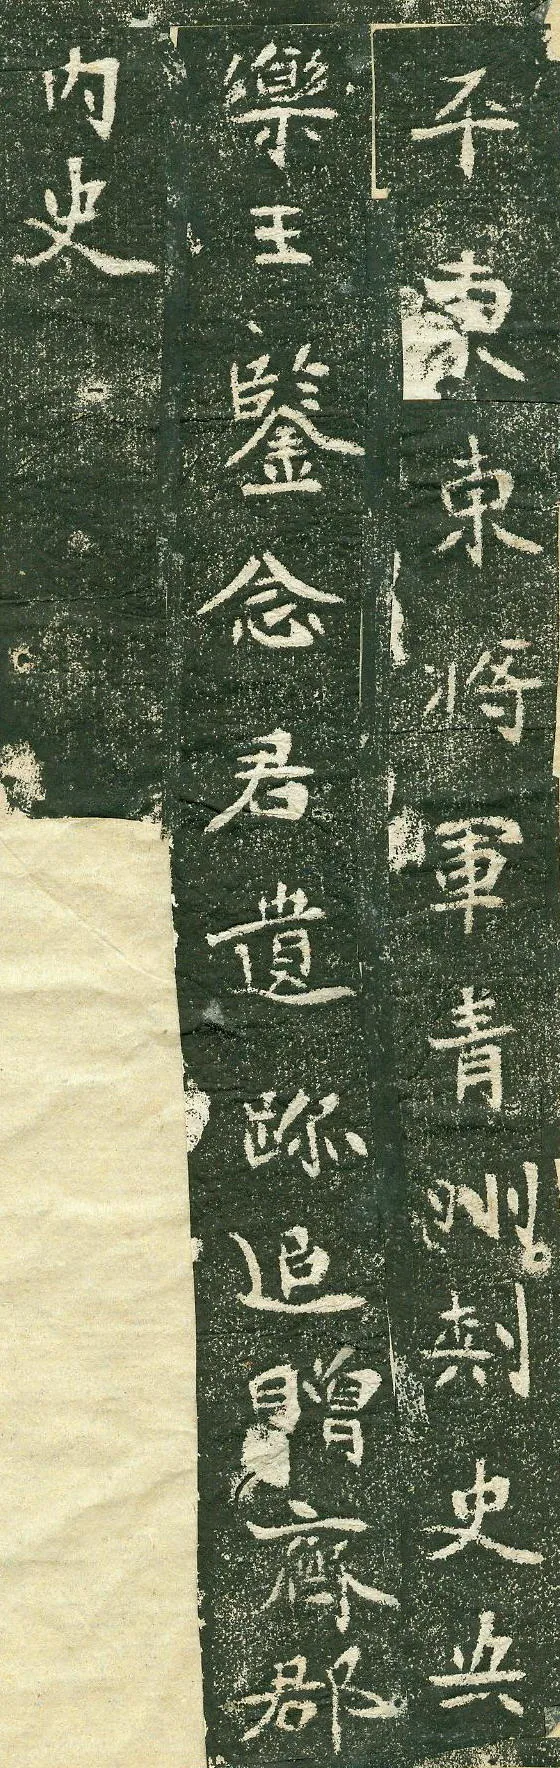 平東東將軍青州刺史安
樂王鑒念君遺跡追贈齊郡
内史